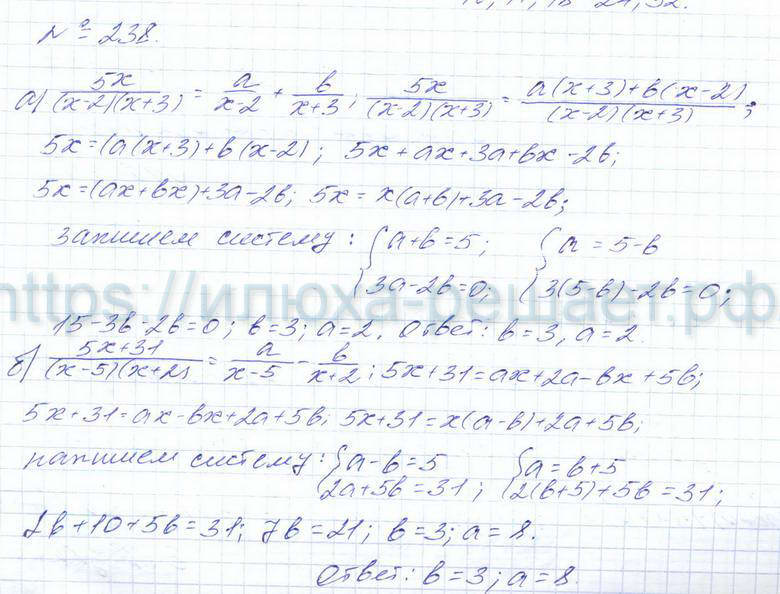 № 238.
а) 5x/((x-2)(x+3)) = a/(x-2) + b/(x+3); 5x/((x-2)(x+3)) = (a(x+3)+b(x-2))/((x-2)(x+3));
5x=(a(x+3)+b(x-2); 5x+ax+3a+bx-2b;
5x=(ax+bx)+3a-2b; 5x=x(a+b)+3a-2b;
запишем систему: { a+b=5; { a=5-b
3a-2b=0; 3(5-b)-2b=0;
https://илюха-решает.рф
15-3b-2b=0; b=3; a=2. Ответ: b=3, a=2.
б) (5x+31)/((x-5)(x+2)) = a/(x-5) - b/(x+2); 5x+31=ax+2a-bx+5b;
5x+31=ax-bx+2a+5b; 5x+31=x(a-b)+2a+5b;
напишем систему: { a-b=5 { a=b+5
2a+5b=31; 2(b+5)+5b=31;
2b+10+5b=31; 7b=21; b=3; a=8.
Ответ: b=3; a=8.